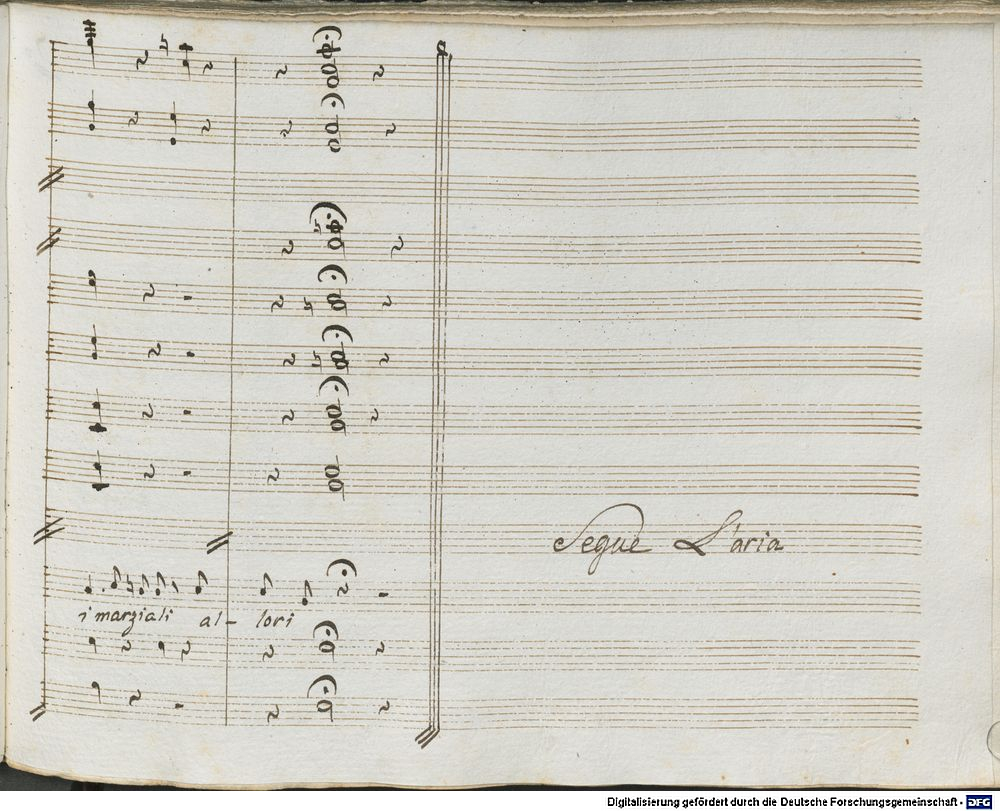 Segue L'aria
i marziali al- lori
Digitalisierung gefördert durch die Deutsche Forschungsgemeinschaft - DFG